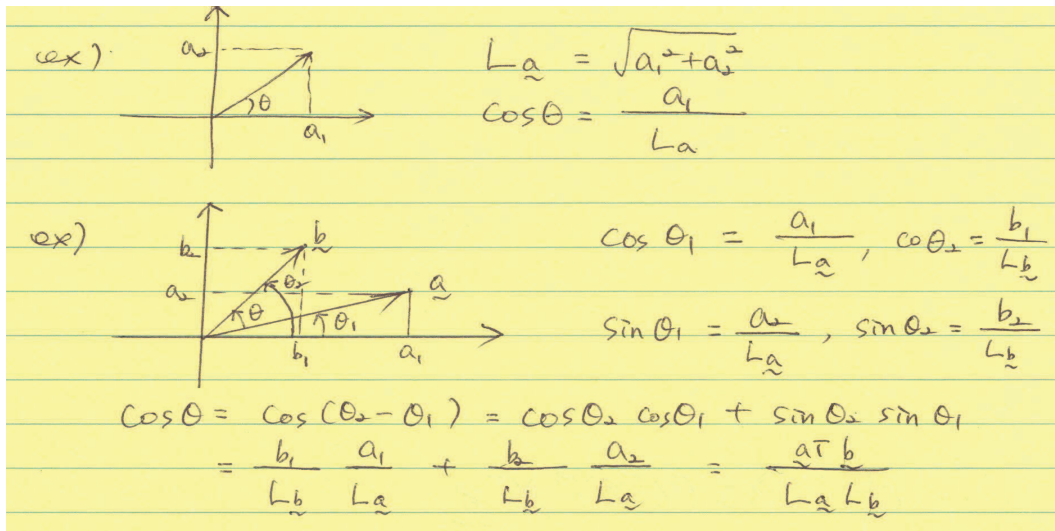 ex)
a₂
θ
a₁
L a̰ = √a₁² + a₂²
cos θ = a₁ / La
ex)
b₂
b̰
a₂
a̰
θ
θ₂
θ₁
b₁
a₁
cos θ₁ = a₁ / L a̰ , coθ₂ = b₁ / L b̰
sin θ₁ = a₂ / L a̰ , sin θ₂ = b₂ / L b̰
cos θ = cos (θ₂ - θ₁) = cos θ₂ cos θ₁ + sin θ₂ sin θ₁
= b₁ / L b̰ a₁ / L a̰ + b₂ / L b̰ a₂ / L a̰ = a̰ᵀ b̰ / L a̰ L b̰